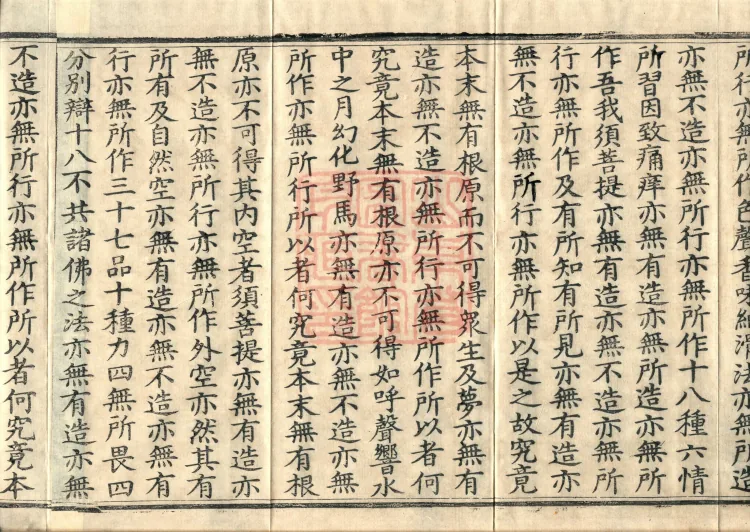 所行亦無所作色聲香味細滑法亦無所造
亦無不造亦無所行亦無所作十八種六情
所習因致痛痒亦無有造亦無所造亦無所
作吾我須菩提亦無有造亦無不造亦無所
行亦無所作及有所知有所見亦無有造亦
無不造亦無所行亦無所作以是之故究竟
本末無有根原而不可得眾生及夢亦無有
造亦無不造亦無所行亦無所作所以者何
究竟本末無有根原亦不可得如呼聲響水
中之月幻化野馬亦無有造亦無不造亦無
所作亦無所行所以者何究竟本末無有根
原亦不可得其內空者須菩提亦無有造亦
無不造亦無所行亦無所作外空亦然其有
所有及自然空亦無有造亦無不造亦無有
行亦無所作三十七品十種力四無所畏四
分別辯十八不共諸佛之法亦無有造亦無
不造亦無所行亦無所作所以者何究竟本